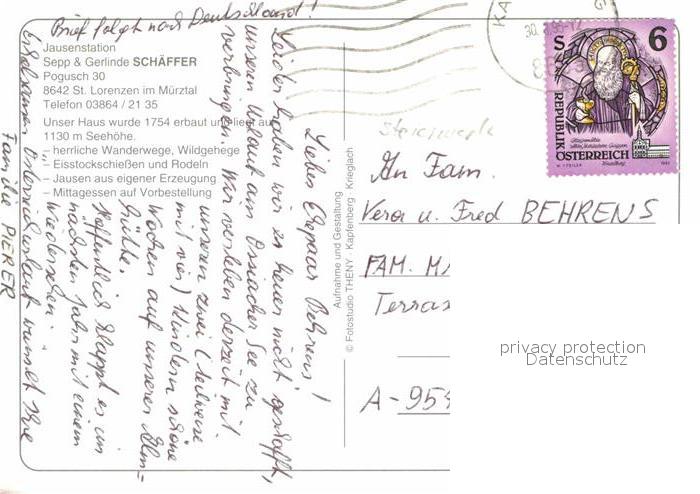 Brief folgt nach Deutschland!
Jausenstation
Sepp & Gerlinde SCHÄFFER
Pogusch 30
8642 St. Lorenzen im Mürztal
Telefon 03864 / 21 35
Unser Haus wurde 1754 erbaut und liegt auf
1130 m Seehöhe.
– herrliche Wanderwege, Wildgehege
– Eisstockschießen und Rodeln
– Jausen aus eigener Erzeugung
– Mittagessen auf Vorbestellung
Liebes Ehepaar Behrens!
Leider haben wir es heuer nicht geschafft,
unseren Urlaub am Ossiacher See zu
verbringen. Wir verleben derzeit mit
unseren zwei (teilweise
mit vier) Kindern schöne
Wochen auf unserer Alm=
hütte.
Hoffentlich klappt es im
nächsten Jahr mit einem
Wiedersehen.
Erholsamen Österreichurlaub wünscht Ihre
Familie PIERER
Aufnahme und Gestaltung
© Fotostudio THENY · Kapfenberg · Krieglach
Steiermark
S 6
REPUBLIK
ÖSTERREICH
An Fam.
Vera u. Fred BEHRENS
FAM.
Terras
A-954
privacy protection
Datenschutz